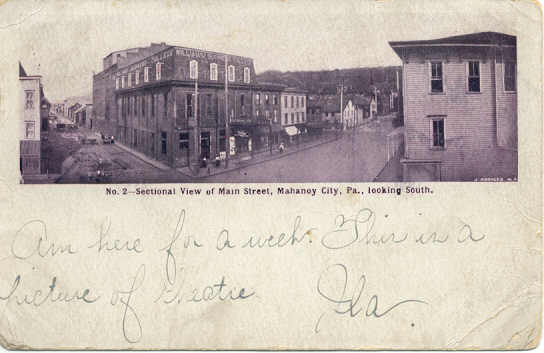 No. 2—Sectional View of Main Street, Mahanoy City, Pa., looking South.
Am here for a week. This is a
picture of theatre. Ida